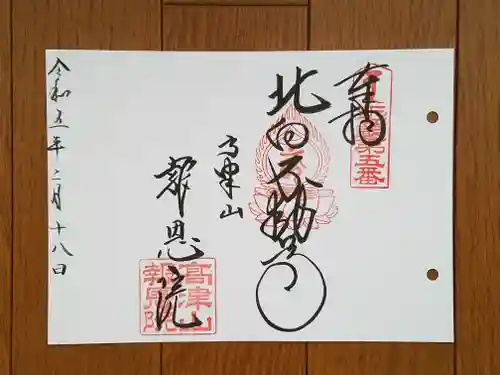 奉拝
北向不動尊
高津山
報恩院
令和五年二月十八日
第五番
高津山
報恩院